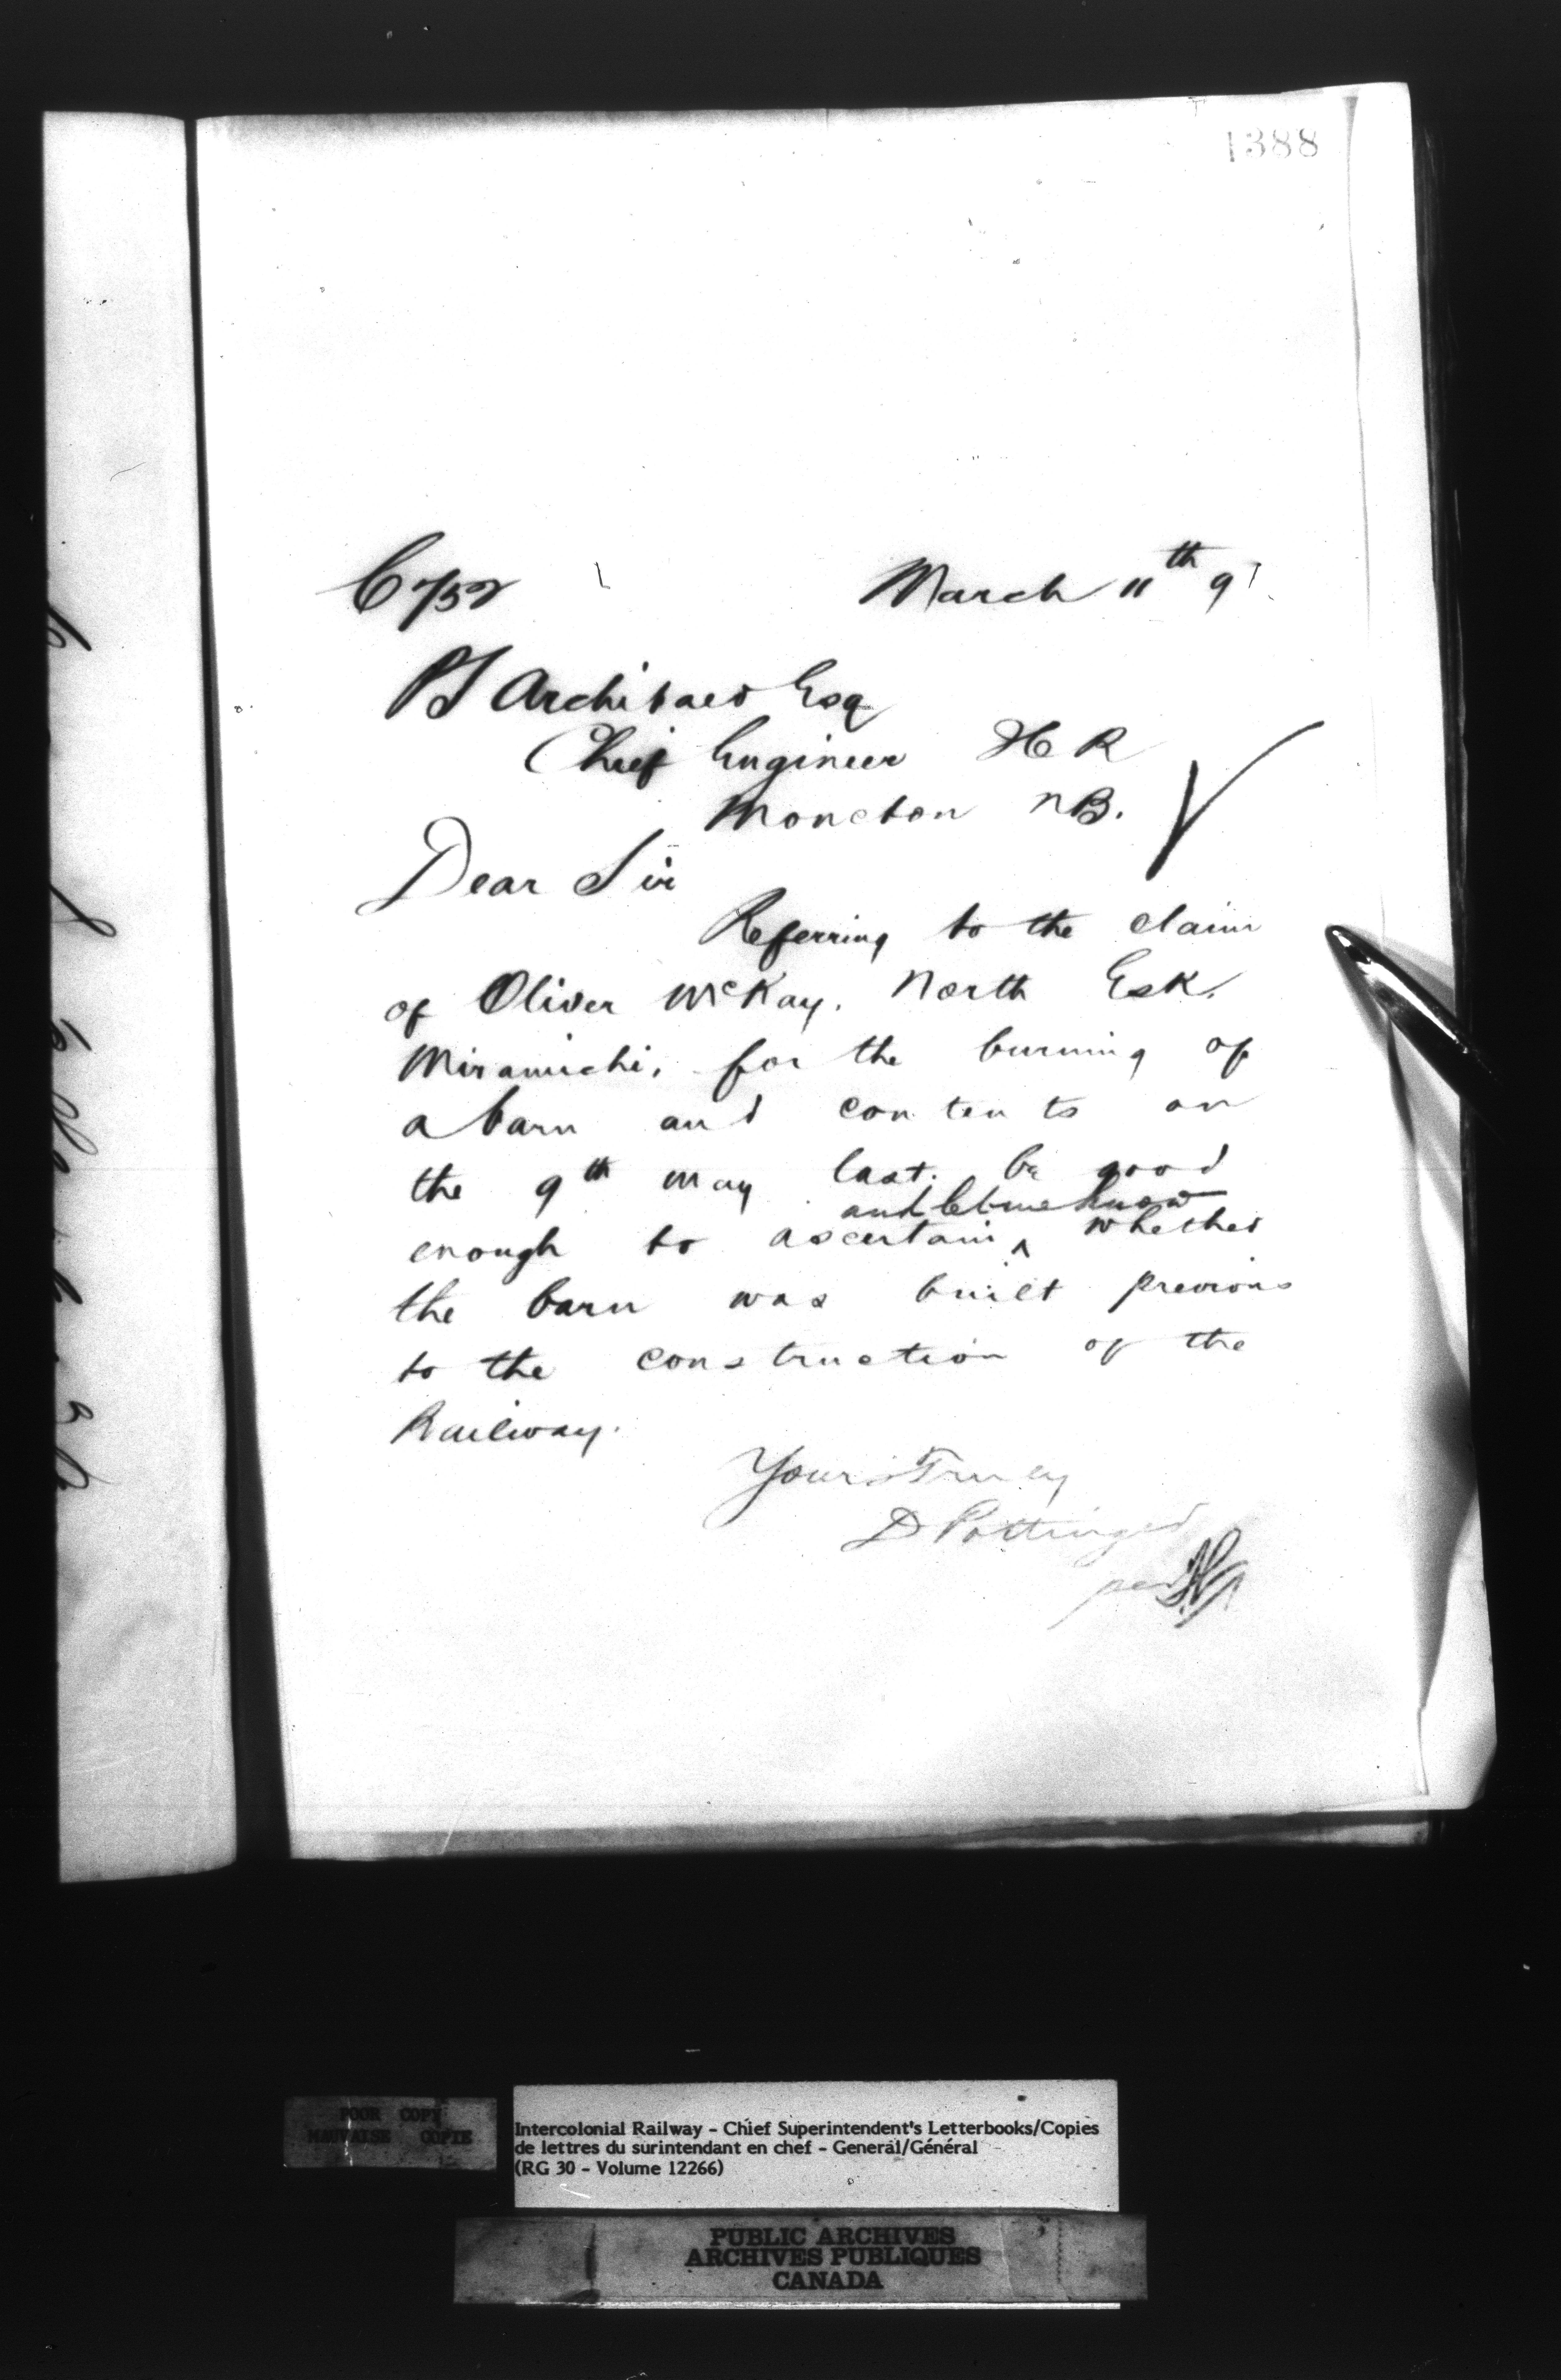 1388
March 11th 91
PS Archibald Esq
Chief Engineer ICR
Moncton NB.
Dear Sir
Referring to the claim
of Oliver McKay. North Esk.
Miramichi, for the burning of
a barn and contents on
the 9th May last. be good
and let me know
enough to ascertain ^ whether
the barn was built previous
to the construction of the
Railway.
Yours Truly
D Pottinger
per
POOR COPY
MAUVAISE COPIE
Intercolonial Railway - Chief Superintendent's Letterbooks/Copies
de lettres du surintendant en chef - General/Général
(RG 30 - Volume 12266)
PUBLIC ARCHIVES
ARCHIVES PUBLIQUES
CANADA